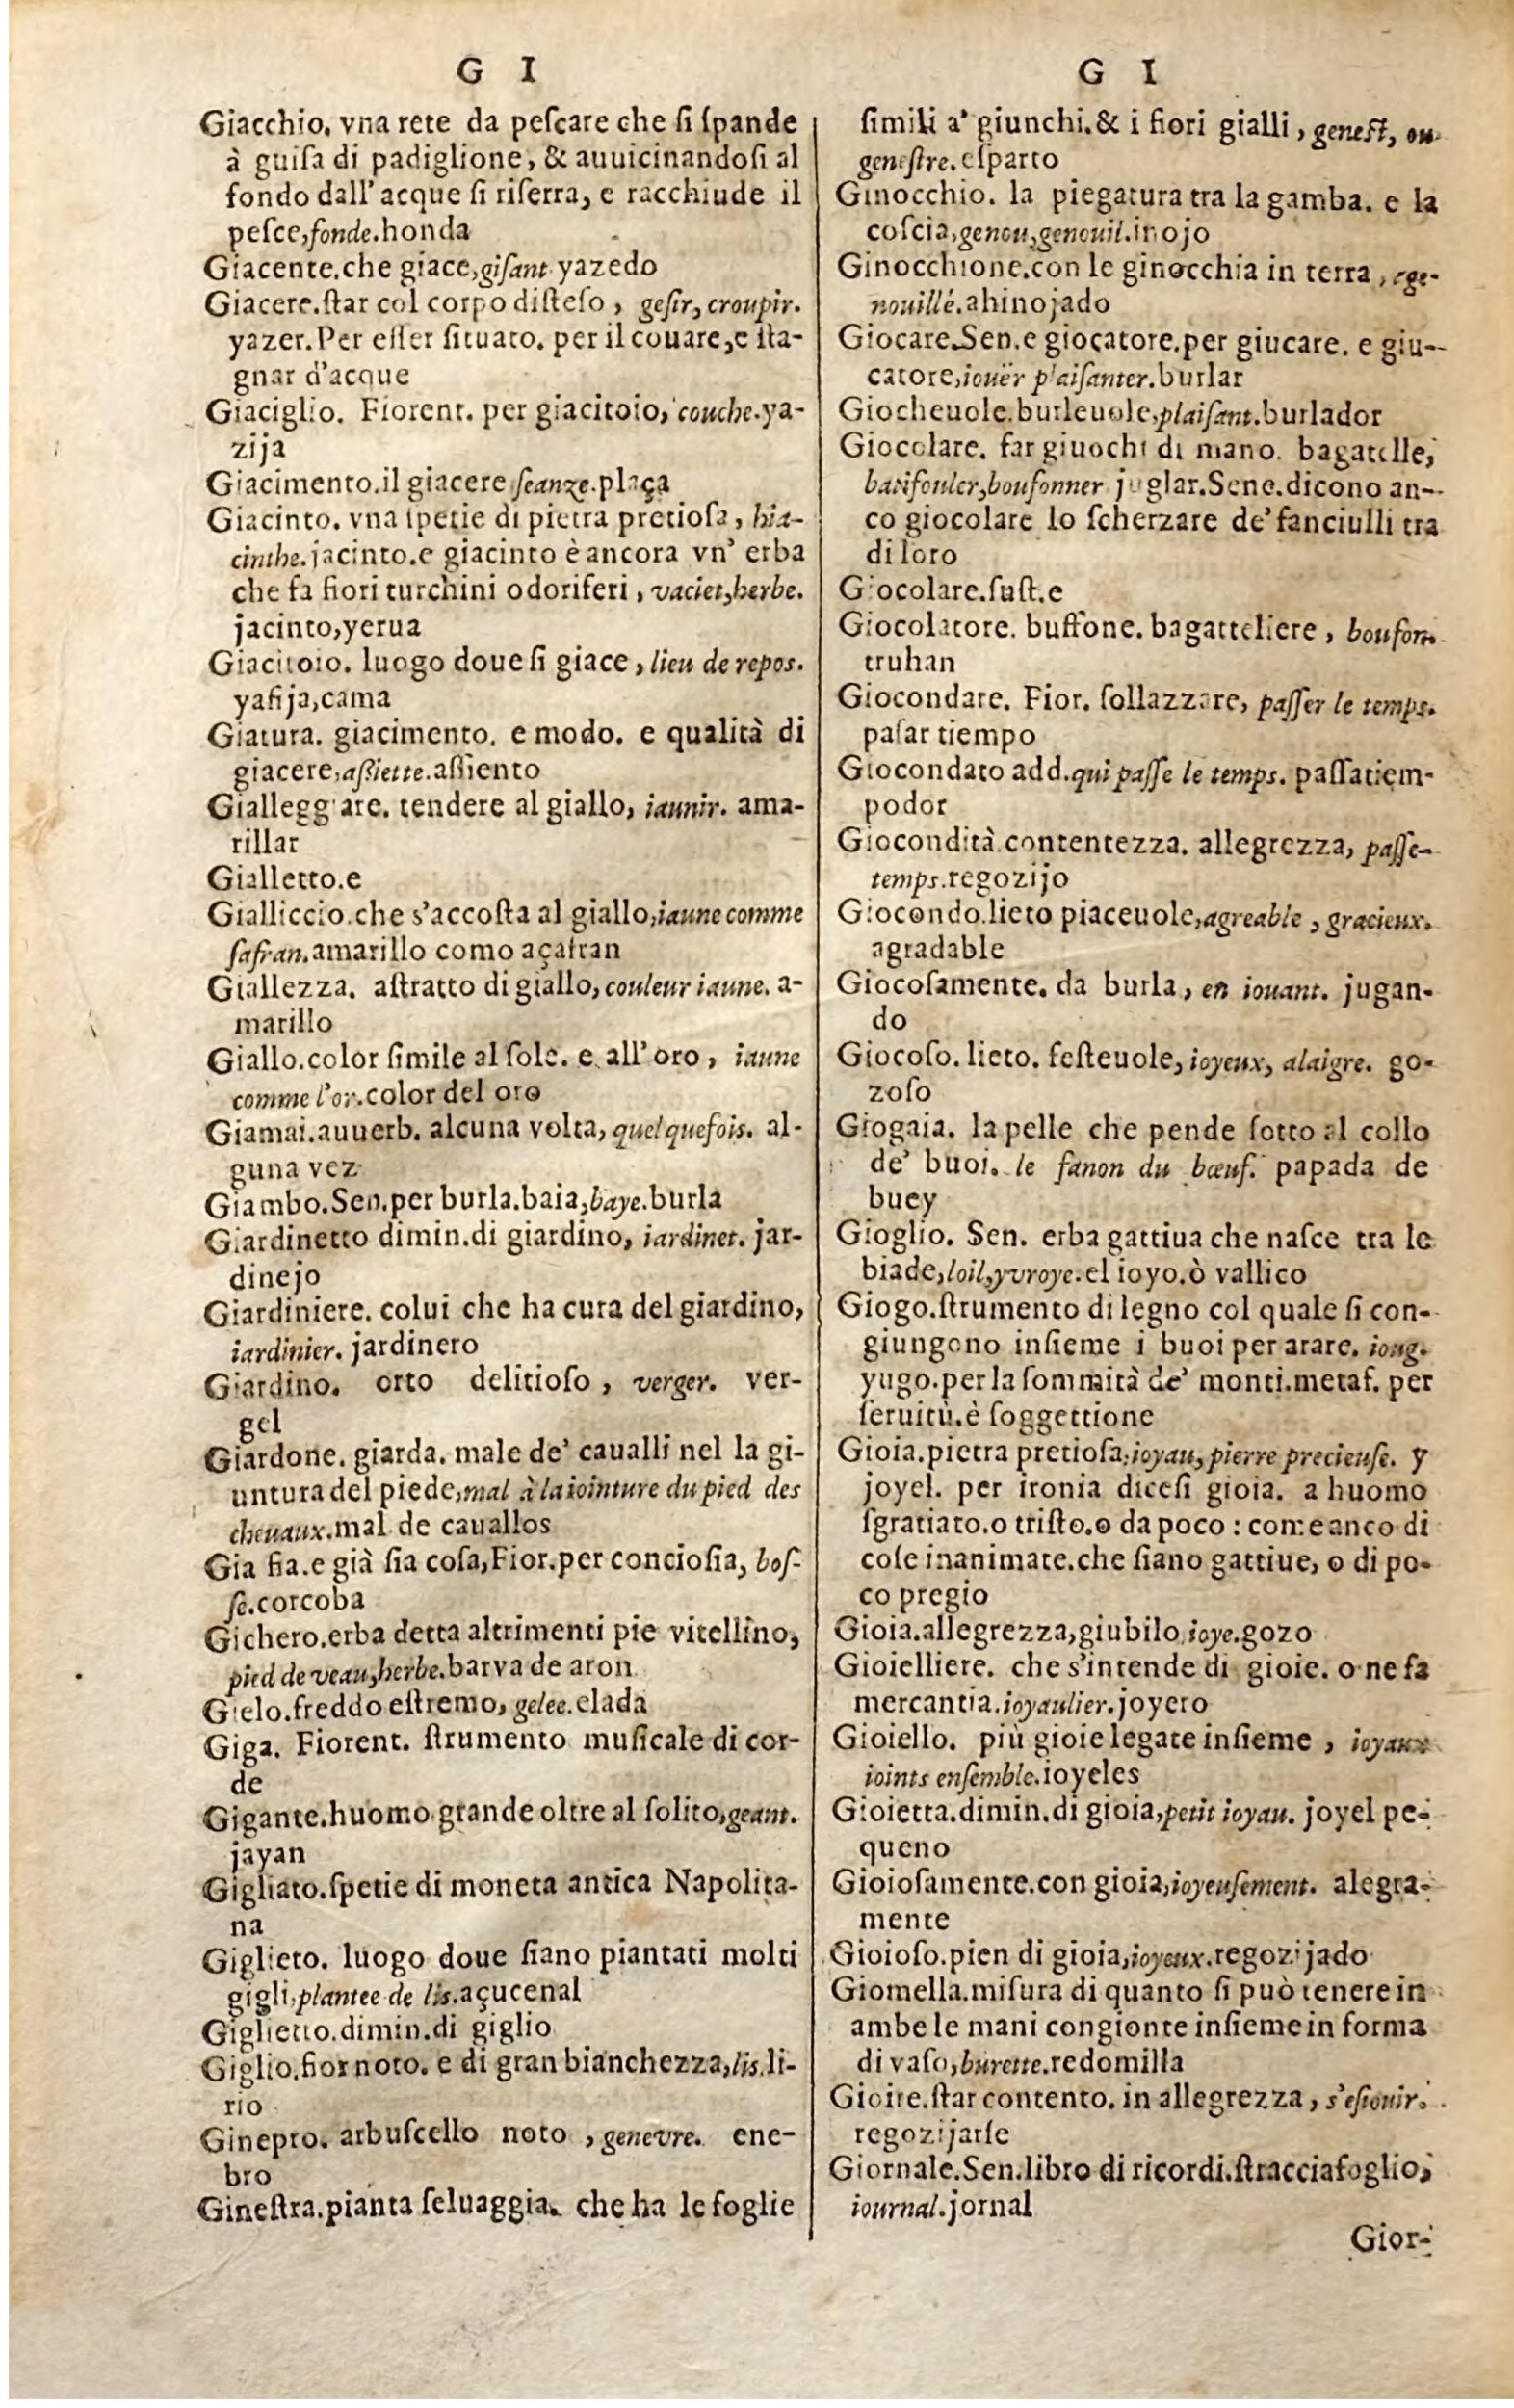 G I
Giacchio. vna rete da peſcare che ſi ſpande
à guiſa di padiglione, & auuicinandoſi al
fondo dall' acque ſi riſerra, e racchiude il
peſce, fonde. honda
Giacente. che giace, giſant yazedo
Giacere. ſtar col corpo diſteſo, geſir, croupir.
yazer. Per eſſer ſituato. per il couare, e ſta-
gnar d'acque
Giaciglio. Fiorent. per giacitoio, couche. ya-
zija
Giacimento. il giacere ſeanze. plaça
Giacinto. vna ſpetie di pietra pretioſa, hia-
cinthe. jacinto. e giacinto è ancora vn' erba
che fa fiori turchini odoriferi, vaciet, herbe.
jacinto, yerua
Giacitoio. luogo doue ſi giace, lieu de repos.
yaſija, cama
Giatura. giacimento. e modo. e qualità di
giacere, aſſiette. aſſiento
Gialleggiare. tendere al giallo, iaunir. ama-
rillar
Gialletto. e
Gialliccio. che s'accoſta al giallo, iaune comme
ſafran. amarillo como açafran
Giallezza. aſtratto di giallo, couleur iaune. a-
marillo
Giallo. color ſimile al ſole. e all' oro, iaune
comme l'or. color del oro
Giamai. auuerb. alcuna volta, quelquefois. al-
guna vez
Giambo. Sen. per burla. baia, baye. burla
Giardinetto dimin. di giardino, iardinet. jar-
dinejo
Giardiniere. colui che ha cura del giardino,
iardinier. jardinero
Giardino. orto delitioſo, verger. ver-
gel
Giardone. giarda. male de' caualli nel la gi-
untura del piede, mal à la iointure du pied des
cheuaux. mal de cauallos
Gia ſia. e già ſia coſa, Fior. per concioſia, boſ-
ſe. corcoba
Gichero. erba detta altrimenti pie vitellino,
pied de veau, herbe. barva de aron
Gielo. freddo eſtremo, gelee. elada
Giga. Fiorent. ſtrumento muſicale di cor-
de
Gigante. huomo grande oltre al ſolito, geant.
jayan
Gigliato. ſpetie di moneta antica Napolita-
na
Giglieto. luogo doue ſiano piantati molti
gigli, plantee de lis. açucenal
Giglietto. dimin. di giglio
Giglio. fior noto. e di gran bianchezza, lis. li-
rio
Ginepro. arbuſcello noto, genevre. ene-
bro
Gineſtra. pianta ſeluaggia. che ha le foglie
G I
ſimili a' giunchi. & i fiori gialli, geneſt, ou
geneſtre. eſparto
Ginocchio. la piegatura tra la gamba. e la
coſcia, genou, genouil. inojo
Ginocchione. con le ginocchia in terra, ege-
nouillé. ahinojado
Giocare. Sen. e giocatore. per giucare. e giu-
catore, iouër plaiſanter. burlar
Giocheuole. burleuole, plaiſant. burlador
Giocolare. far giuochi di mano. bagatelle,
batifouler, boufonner juglar. Sene. dicono an-
co giocolare lo ſcherzare de' fanciulli tra
di loro
Giocolare. ſuſt. e
Giocolatore. buffone. bagatteliere, boufon.
truhan
Giocondare. Fior. ſollazzare, paſſer le temps.
paſar tiempo
Giocondato add. qui paſſe le temps. paſſatiem-
podor
Giocondità. contentezza. allegrezza, paſſe-
temps. regozijo
Giocondo. lieto piaceuole, agreable, gracieux.
agradable
Giocoſamente. da burla, en iouant. jugan-
do
Giocoſo. lieto. feſteuole, ioyeux, alaigre. go-
zoſo
Giogaia. la pelle che pende ſotto al collo
de' buoi. le fanon du bœuf. papada de
buey
Gioglio. Sen. erba gattiua che naſce tra le
biade, loil, yvroye. el ioyo. ò vallico
Giogo. ſtrumento di legno col quale ſi con-
giungono inſieme i buoi per arare. ioug.
yugo. per la ſommità de' monti. metaf. per
ſeruitù. è ſoggettione
Gioia. pietra pretioſa, ioyau, pierre precieuſe. y
joyel. per ironia diceſi gioia. a huomo
ſgratiato. o triſto. o da poco : come anco di
coſe inanimate. che ſiano gattiue, o di po-
co pregio
Gioia. allegrezza, giubilo, ioye. gozo
Gioielliere. che s'intende di gioie. o ne fa
mercantia. ioyaulier. joyero
Gioiello. più gioie legate inſieme, ioyaux
ioints enſemble. ioyeles
Gioietta. dimin. di gioia, petit ioyau. joyel pe-
queno
Gioioſamente. con gioia, ioyeuſement. alegra-
mente
Gioioſo. pien di gioia, ioyeux. regozijado
Giomella. miſura di quanto ſi può tenere in
ambe le mani congionte inſieme in forma
di vaſo, burette. redomilla
Gioire. ſtar contento. in allegrezza, s'eſiouir.
regozijarſe
Giornale. Sen. libro di ricordi. ſtracciafoglio,
iournal. jornal
Gior-